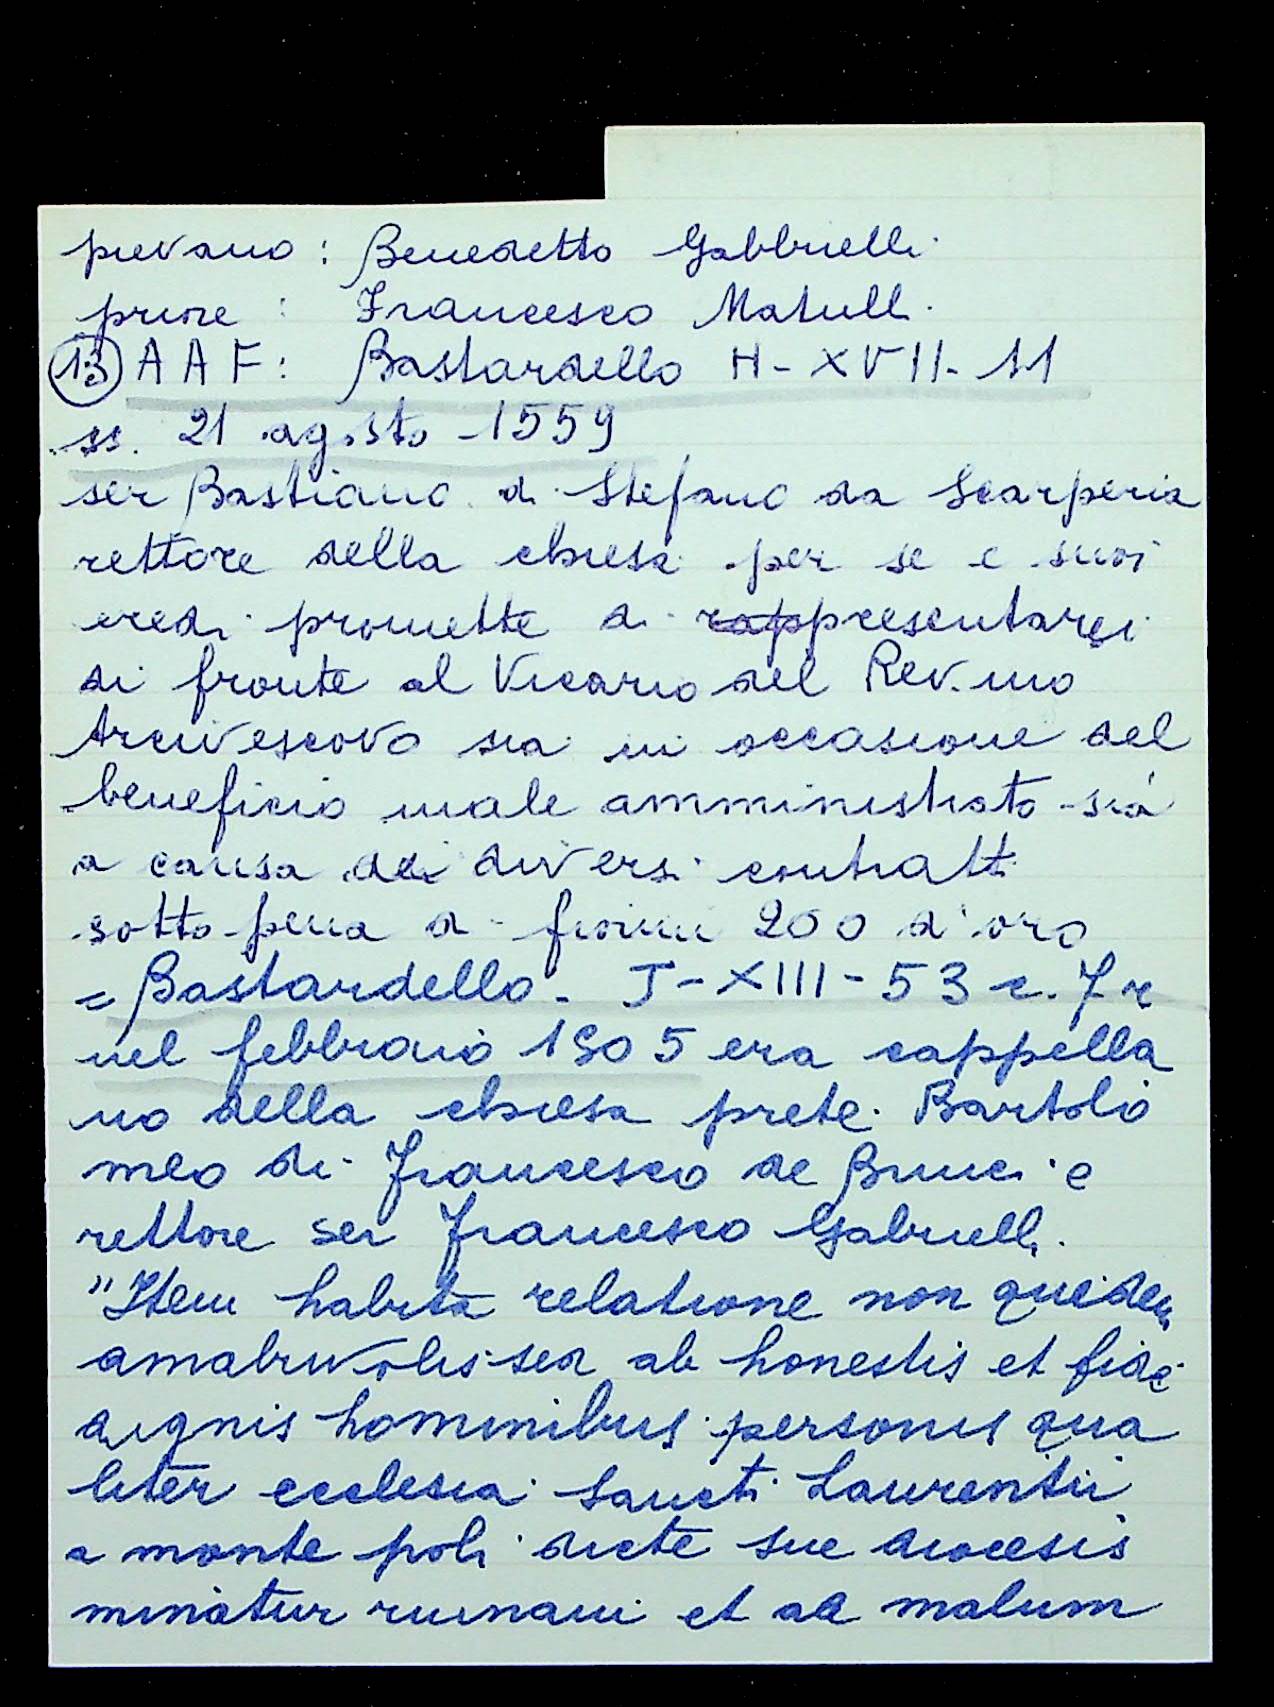 pievano : Benedetto Gabbrielli
priore : Francesco Matulli.
13 A A F : Bastardello H - XVII - 11
ss. 21 agosto 1559
ser Bastiano di Stefano da Scarperia
rettore della chiesa per se e suoi
eredi promette di rappresentarsi
di fronte al Vicario del Rev.mo
Arcivescovo sia in occasione del
beneficio male amministrato sia
a causa dei diversi contratti
sotto pena di fiorini 200 d'oro
= Bastardello - J - XIII - 53 c. 7r
nel febbraio 1505 era cappella
no della chiesa prete Bartolo
meo di Francesco de Bruci e
rettore ser Francesco Gabrielli.
"Item habita relatione non quidem
a malivolis sed ab honestis et fide
dignis hominibus personis qua
liter ecclesia Sancti Laurentii
a monte poli dicte sue diocesis
minatur ruinam et ad malum